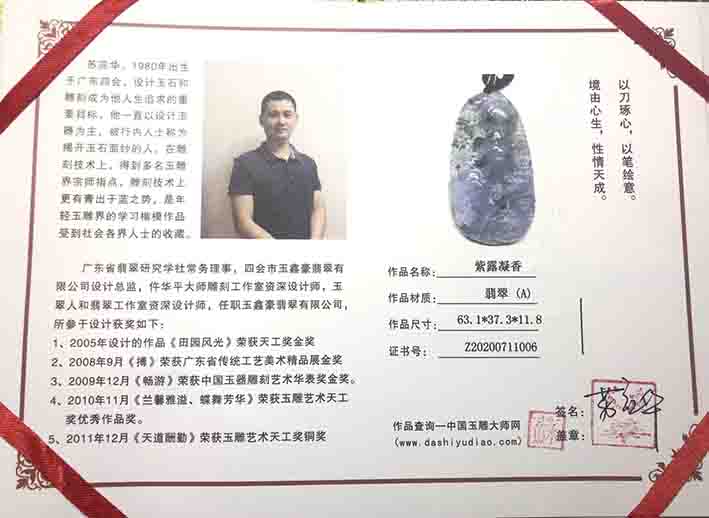 苏京华，1980年出生
于广东四会，设计玉石和
雕刻成为他人生追求的重
要目标，他一直以设计玉
器为主，被行内人士称为
揭开玉石面纱的人，在雕
刻技术上，得到多名玉雕
界宗师指点，雕刻技术上
更有青出于蓝之势，是年
轻玉雕界的学习楷模作品
受到社会各界人士的收藏。
广东省翡翠研究学社常务理事，四会市玉鑫豪翡翠有
限公司设计总监，仵华平大师雕刻工作室资深设计师，玉
翠人和翡翠工作室资深设计师，任职玉鑫豪翡翠有限公司，
所参于设计获奖如下：
1、2005年设计的作品《田园风光》荣获天工奖金奖
2、2008年9月《搏》荣获广东省传统工艺美术精品展金奖
3、2009年12月《畅游》荣获中国玉器雕刻艺术华表奖金奖。
4、2010年11月《兰馨雅溢、蝶舞芳华》荣获玉雕艺术天工
奖优秀作品奖。
5、2011年12月《天道酬勤》荣获玉雕艺术天工奖铜奖
以刀琢心，以笔绘意。
境由心生，性情天成。
作品名称： 紫露凝香
作品材质： 翡翠 (A)
作品尺寸： 63.1*37.3*11.8
证书号： Z20200711006
签名：
作品查询一中国玉雕大师网 盖章：
(www.dashiyudiao.com)